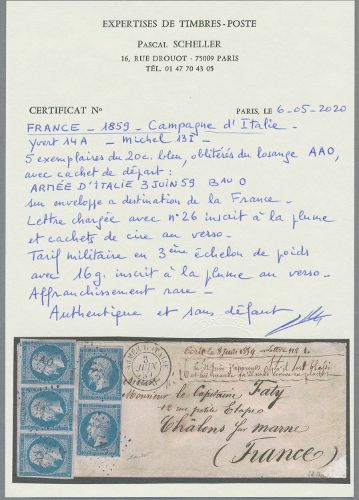 EXPERTISES DE TIMBRES-POSTE
PASCAL SCHELLER
16, RUE DROUOT - 75009 PARIS
TÉL. 01 47 70 43 05
CERTIFICAT No
PARIS, LE 6-05-2020
FRANCE - 1859 - Campagne d'Italie -
Yvert 14A - Michel 13I -
5 exemplaires du 20c. bleu, oblitérés du losange AAO,
avec cachet de départ :
ARMÉE D'ITALIE 3 JUIN 59 Bau O
sur enveloppe a destination de la France -
Lettre chargée avec n° 26 inscrit à la plume
et cachets de cire au verso -
Tarif militaire en 3ème échelon de poids
avec 16g. inscrit à la plume au verso -
Affranchissement rare -
Authentique et sans défaut
Lettre n° 1.
Monsieur le Capitaine Faty
12 rue petite Etape
Châlons sur marne
(France)